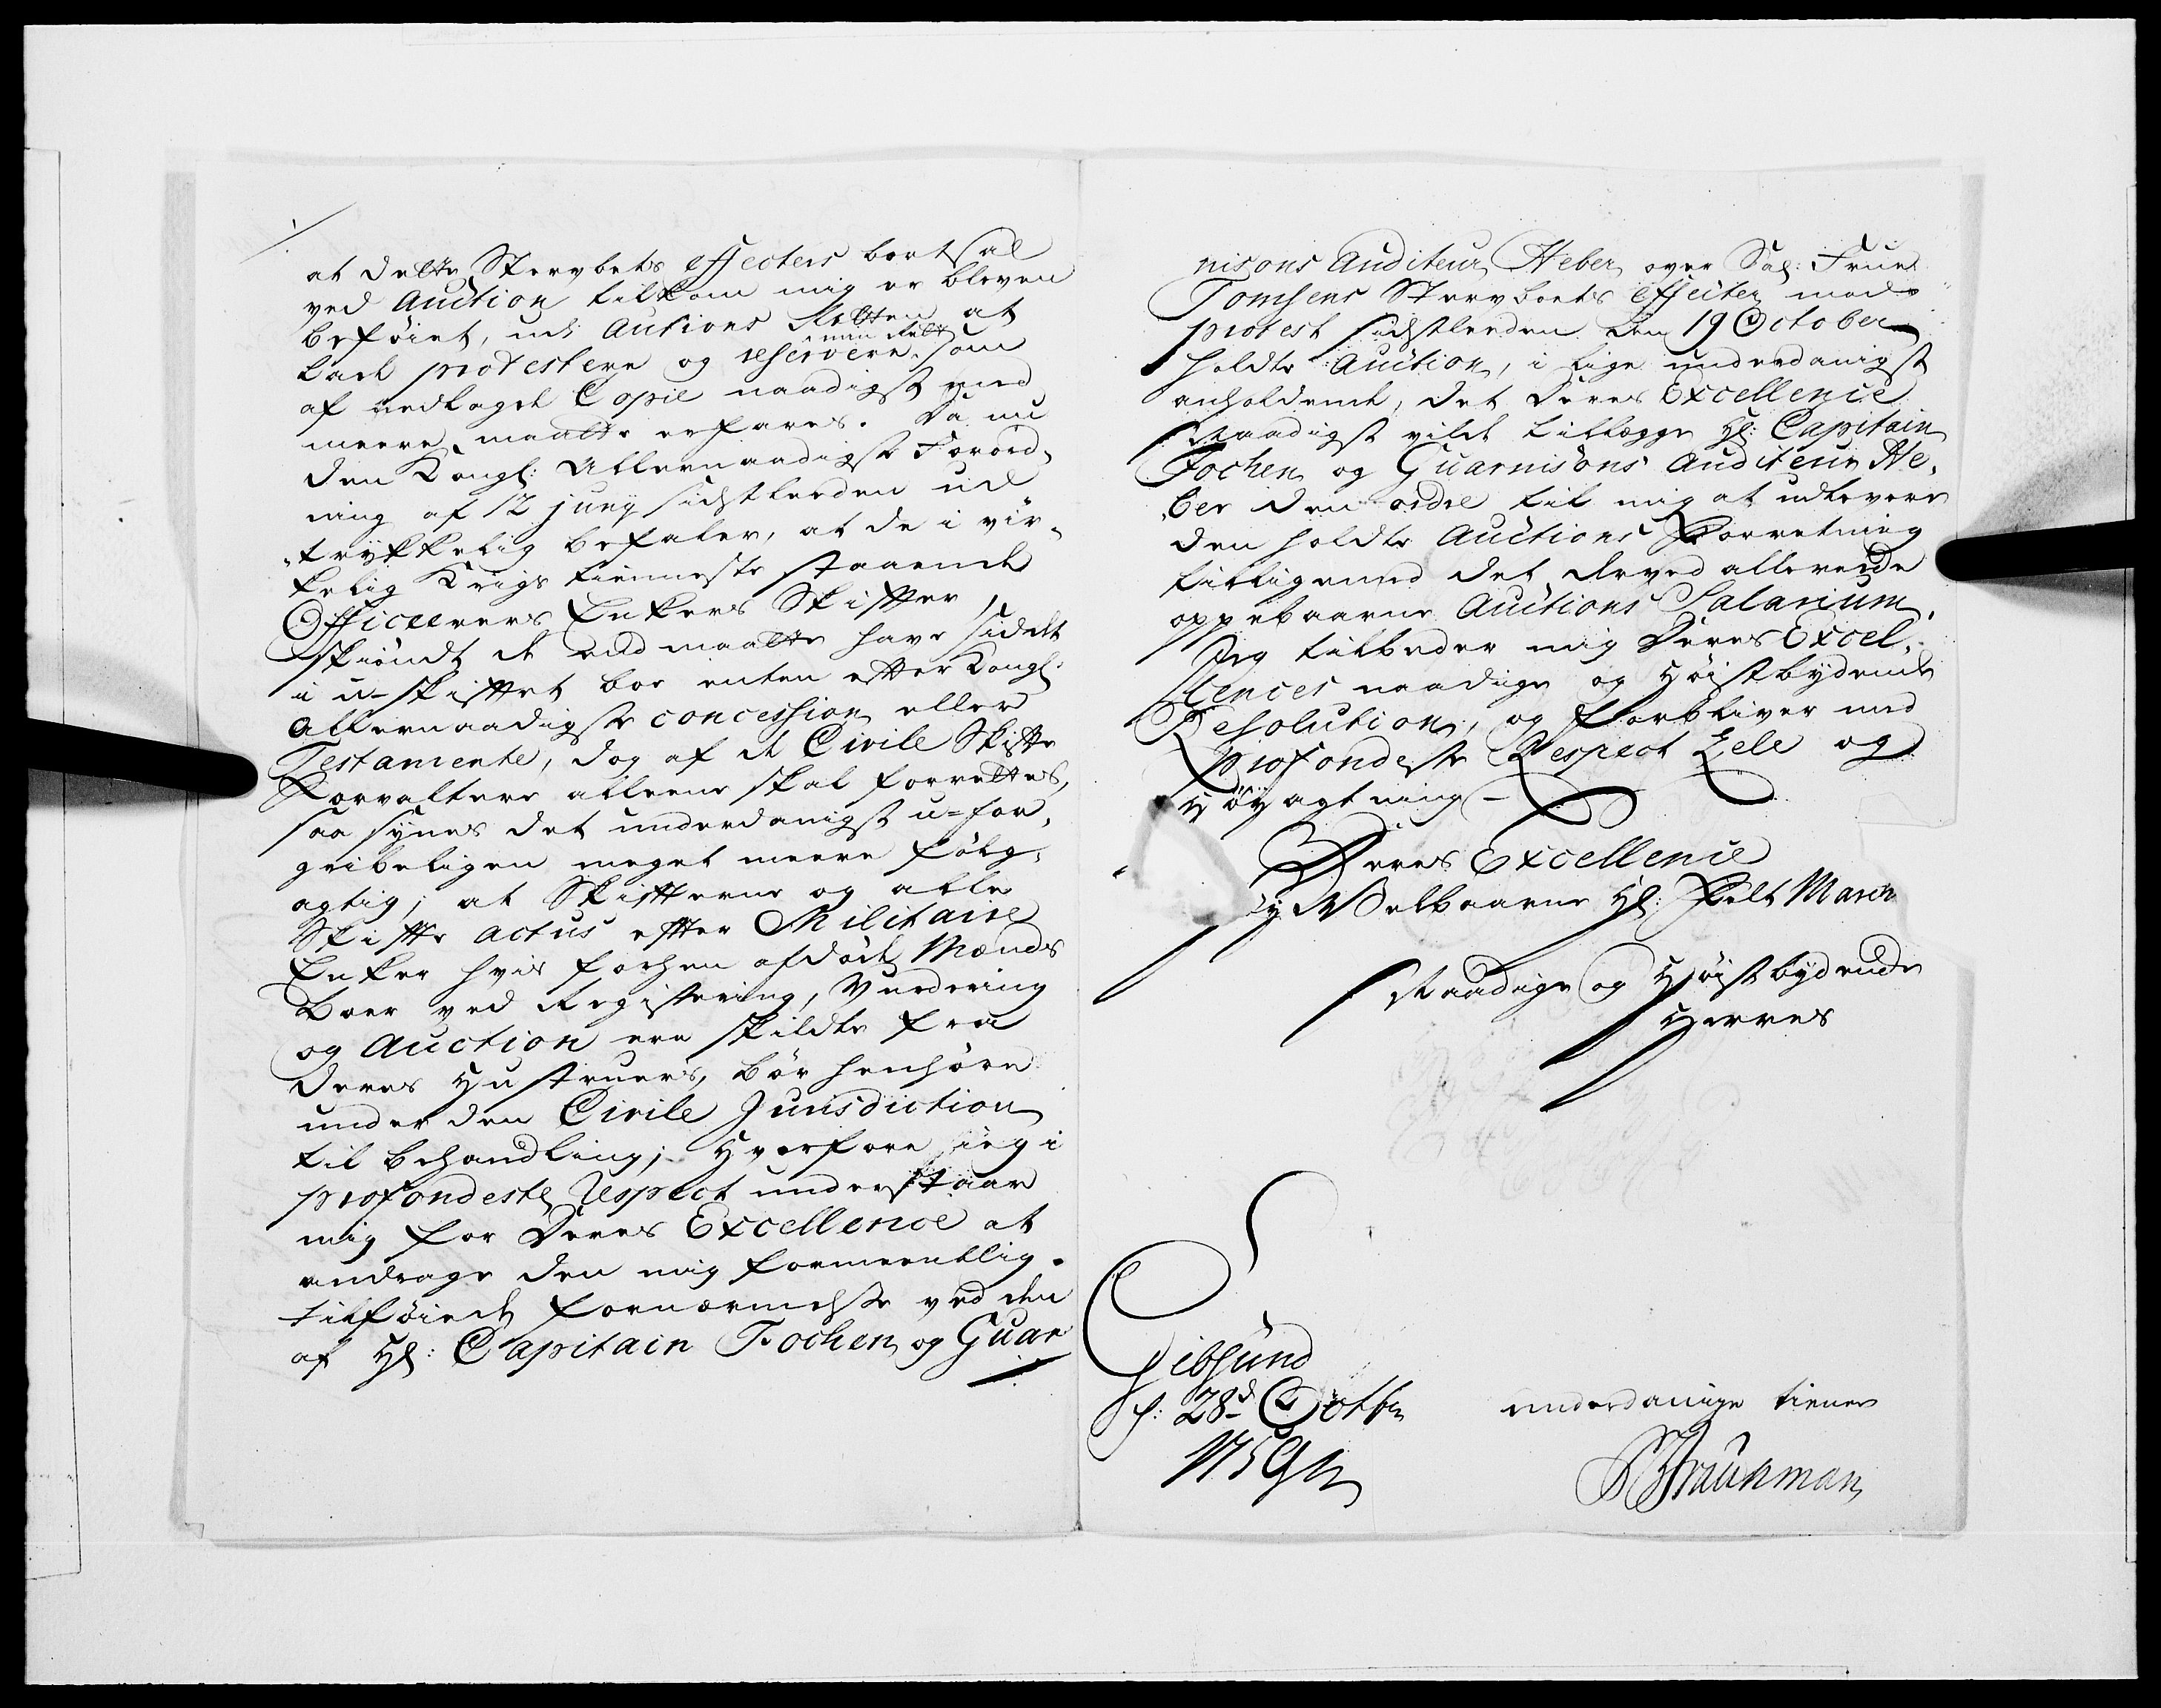 at dette Sterbets effecters bortsal
ved Auction tilkom mig er bleven
beføiet, udi Autions Retten at
lade protestere og reservere min Rett som
af nedlagde Copie naadigst med
meere maatte erfares. Da nu
den Kongl: Allernaadigste Forord-
ning af 12 junij sidstleeden ud
trykkelig befaler, at de i vir-
kelig Krigs tienneste staaende
Officeerers Enkers Skiffter,
skiøndt de end maatte have siddet
i u-skifftet boe enten effter Kongl:
Allernaadigste concession eller
Testamente, dog af de Civile Skiffte
Forvaltere alleene skal forrettes,
saa synes det underdanigst u-for-
gribeligen meget meere følg-
agtig; at Skiffterne og alle
Skiffte actus effter Militaire
Enker hvis forhen afdøde Mænds
Boer ved Registering, Vurdering
og Auction ere skildte fra
deres Hustruers, bør henhøre
under den Civile Jurisdiction
til behandling; Hvorfore jeg i
profondeste Respect understaar
mig for Deres Excellence at
andrage den mig formeentlig
tilføiede fornærmelse ved den
af Hl: Capitain Fochen og Guar
nisons Auditeur Heber over Sal: Frue
Tomsens Sterboets effecter mod
protest sidstleeden den 19 October
holdte Auction, i lige underdanigst
anholdende, det Deres Excellence
Naadigst vilde tillegge Hl: Capitain
Fochen og Guarnisons Auditeur He-
ber den ordre til mig at udlevere
den holdte Auctions Forretning
tilligemed det derved allereede
oppebaarne Auctions Salarium.
Jeg tilbeder mig Deres Excel-
lences naadige og Høistbydende
Resolution, og forbliver med
profondeste Respect Zele og
Høyagtning
Deres Excellence
Høy Welbaarne Hl: Felt Marsch
Naadige og Høistbydende
Herres
Gibsund
d: 28d Octbr
1759
underdanige tiener
Braunman